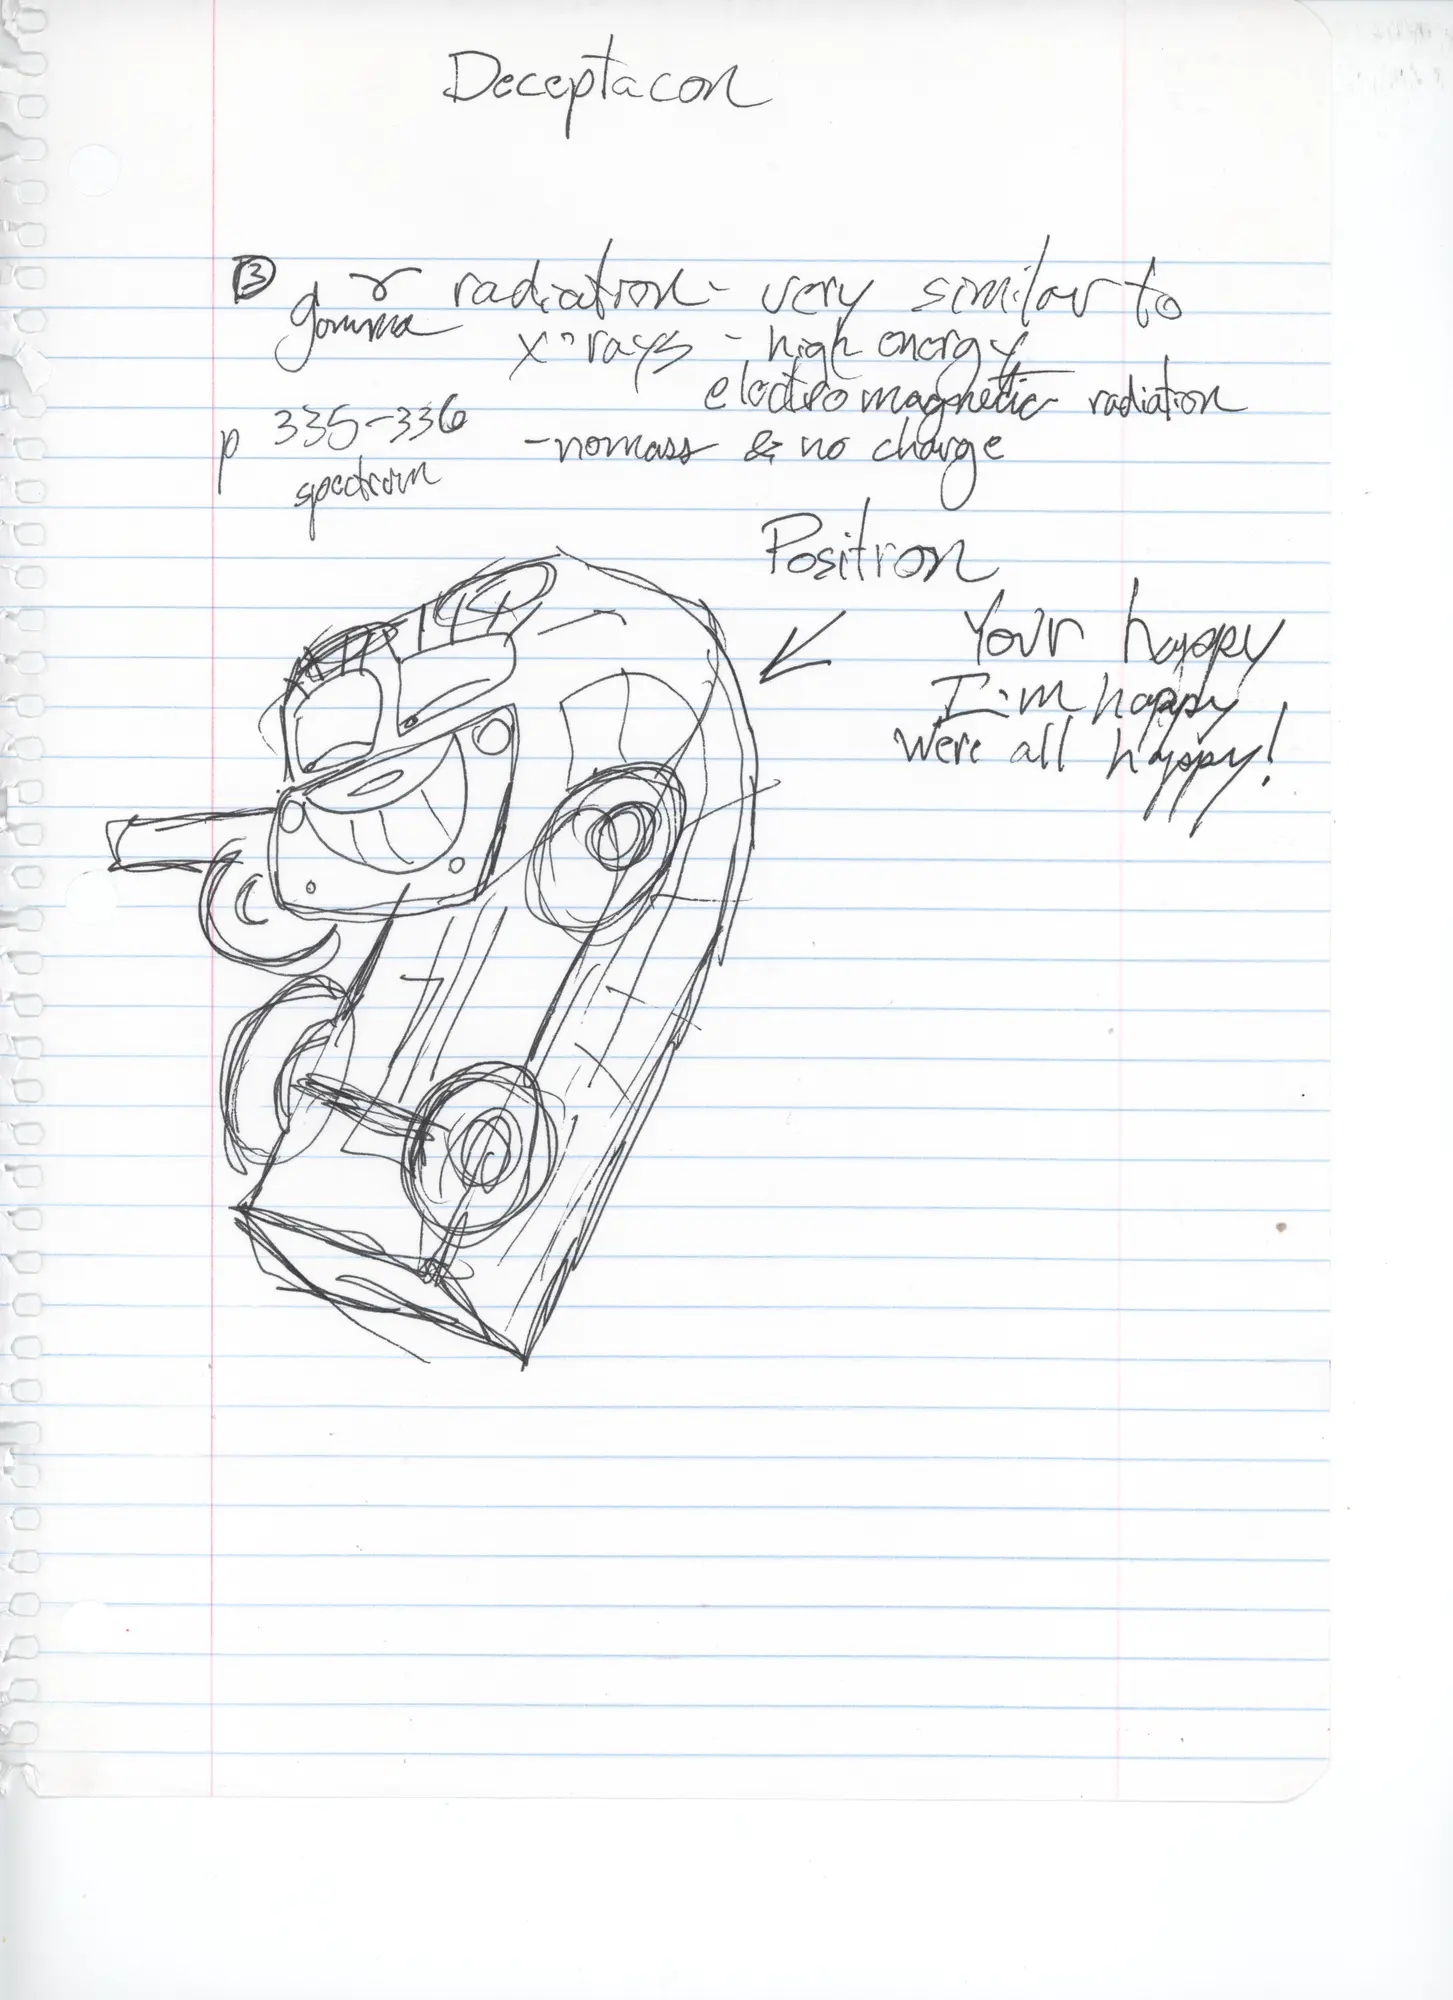 Deceptacon
3 γ radiation - very similar to
gamma x-rays - high energy
electromagnetic radiation
p 335-336 - no mass & no charge
spectrum
Positron
Your happy
I'm happy
Were all happy!